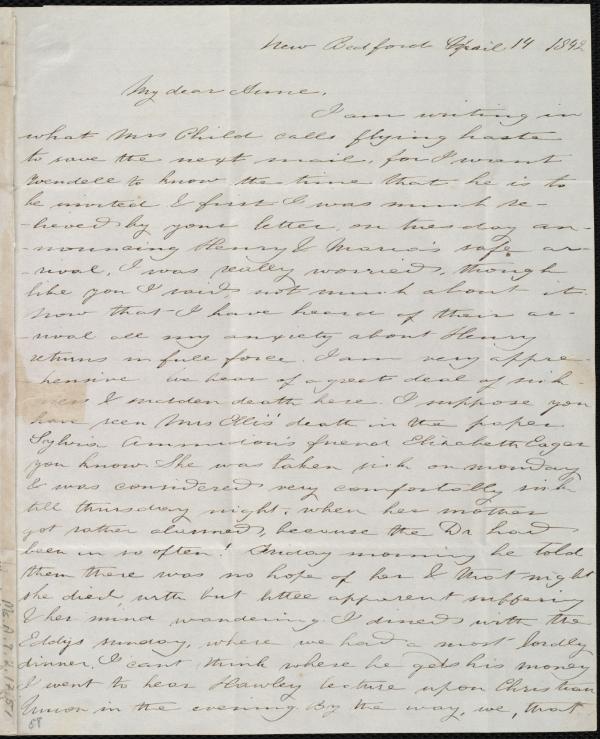 New Bedford April 14 1842
My dear Anne,
I am writing in
what Mrs Child calls flying haste
to save the next mail, for I want
Wendell to know the time that he is to
be invited & first I was much re-
-lieved by your letter, on tuesday an-
-nouncing Henry & Maria's safe ar-
-rival, I was really worried, though
like you I said not much about it.
Now that I have heard of their ar-
-rival all my anxiety about Henry
returns in full force. I am very appre-
-hensive we hear of a great deal of sick-
-ness & sudden death here. I suppose you
have seen Mrs Ellis' death in the paper
Sylvia Ammidon's friend Elizabeth Eager
you know. She was taken sick on monday
& was considered very comfortably sick
till thursday night, when her mother
got rather alarmed, because the Dr had
been in so often! Friday morning he told
them there was no hope of her & that night
she died with but little apparent suffering
& her mind wandering. I dined with the
Eddys sunday, where we had a most lordly
dinner, I cant think where he gets his money
I went to hear Hawley lecture upon Christian
Union in the evening. By the way, we, that
Ms.A.9.2.17.51
58